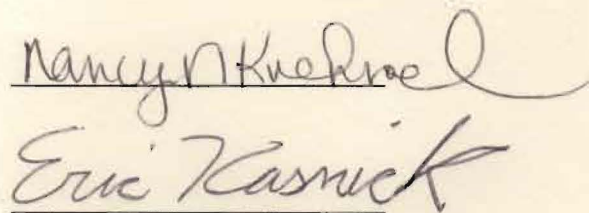 Nancy N Kuehnoel
Eric Kasnick